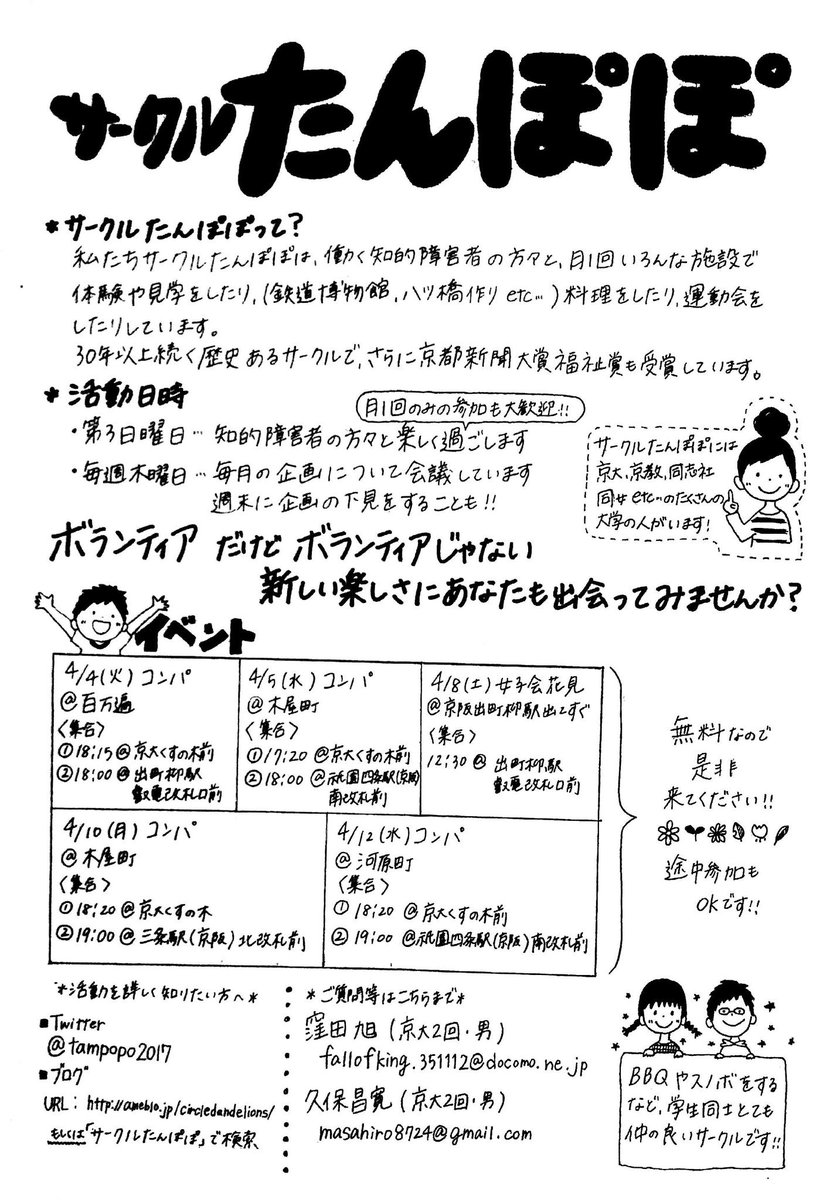 サークルたんぽぽ
*サークルたんぽぽって?
私たちサークルたんぽぽは、働く知的障害者の方々と、月1回いろんな施設で
体験や見学をしたり、(鉄道博物館、八ツ橋作り etc…)料理をしたり、運動会を
したりしています。
30年以上続く歴史あるサークルで、さらに京都新聞大賞福祉賞も受賞しています。
*活動日時
月1回のみの参加も大歓迎!!
・第3日曜日…知的障害者の方々と楽しく過ごします
・毎週木曜日…毎月の企画について会議しています
週末に企画の下見をすることも!!
サークルたんぽぽには
京大、京教、同志社
同女etc…のたくさんの
大学の人がいます!
ボランティアだけどボランティアじゃない
新しい楽しさにあなたも出会ってみませんか?
イベント
4/4(火)コンパ
@百万遍
〈集合〉
①18:15@京大くすの木前
②18:00@出町柳駅
叡電改札口前
4/5(水)コンパ
@木屋町
〈集合〉
①17:20@京大くすの木前
②18:00@祇園四条駅(京阪)
南改札前
4/8(土)女子会花見
@京阪出町柳駅出てすぐ
〈集合〉
12:30@出町柳駅
叡電改札口前
4/10(月)コンパ
@木屋町
〈集合〉
①18:20@京大くすの木
②19:00@三条駅(京阪)北改札前
4/12(水)コンパ
@河原町
〈集合〉
①18:20@京大くすの木前
②19:00@祇園四条駅(京阪)南改札前
無料なので
是非
来てください!!
途中参加も
OKです!!
*活動を詳しく知りたい方へ*
■Twitter
@tampopo2017
■ブログ
URL: http://ameblo.jp/circledandelions/
もしくは「サークルたんぽぽ」で検索
*ご質問等はこちらまで*
窪田旭(京大2回・男)
fallofking.351112@docomo.ne.jp
久保昌寛(京大2回・男)
masahiro8724@gmail.com
BBQやスノボをする
など、学生同士とても
仲の良いサークルです!!